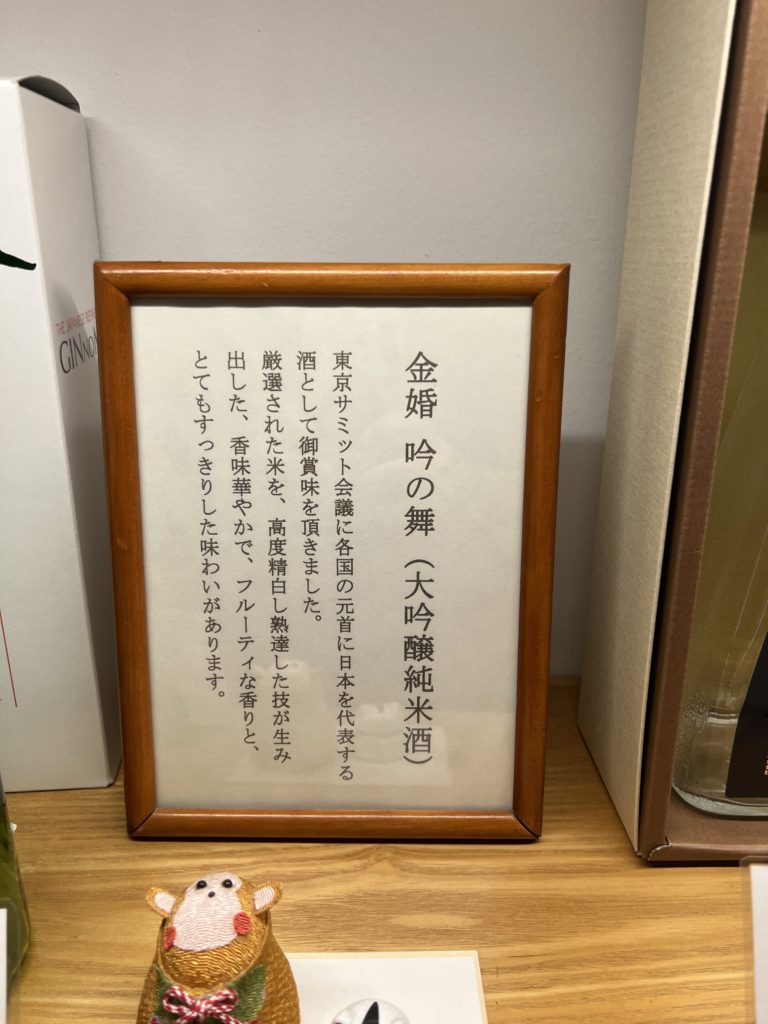 金婚 吟の舞（大吟醸純米酒）
東京サミット会議に各国の元首に日本を代表する
酒として御賞味を頂きました。
厳選された米を、高度精白し熟達した技が生み
出した、香味華やかで、フルーティな香りと、
とてもすっきりした味わいがあります。
THE JAPANESE